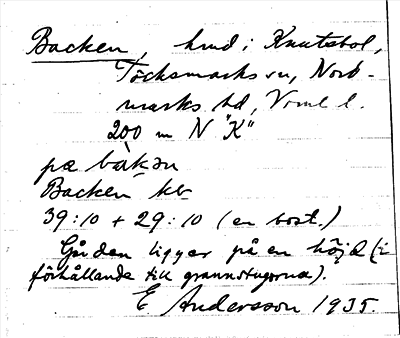 Backen, hmd i Knutsbol,
Töcksmarks sn, Nord-
marks hd, Värml l.
200 m N "K"
pæ bakən
Backen kb
39:10 + 29:10 (en bost.)
Gården ligger på en höjd (i
förhållande till grannstugorna).
E Andersson 1935.